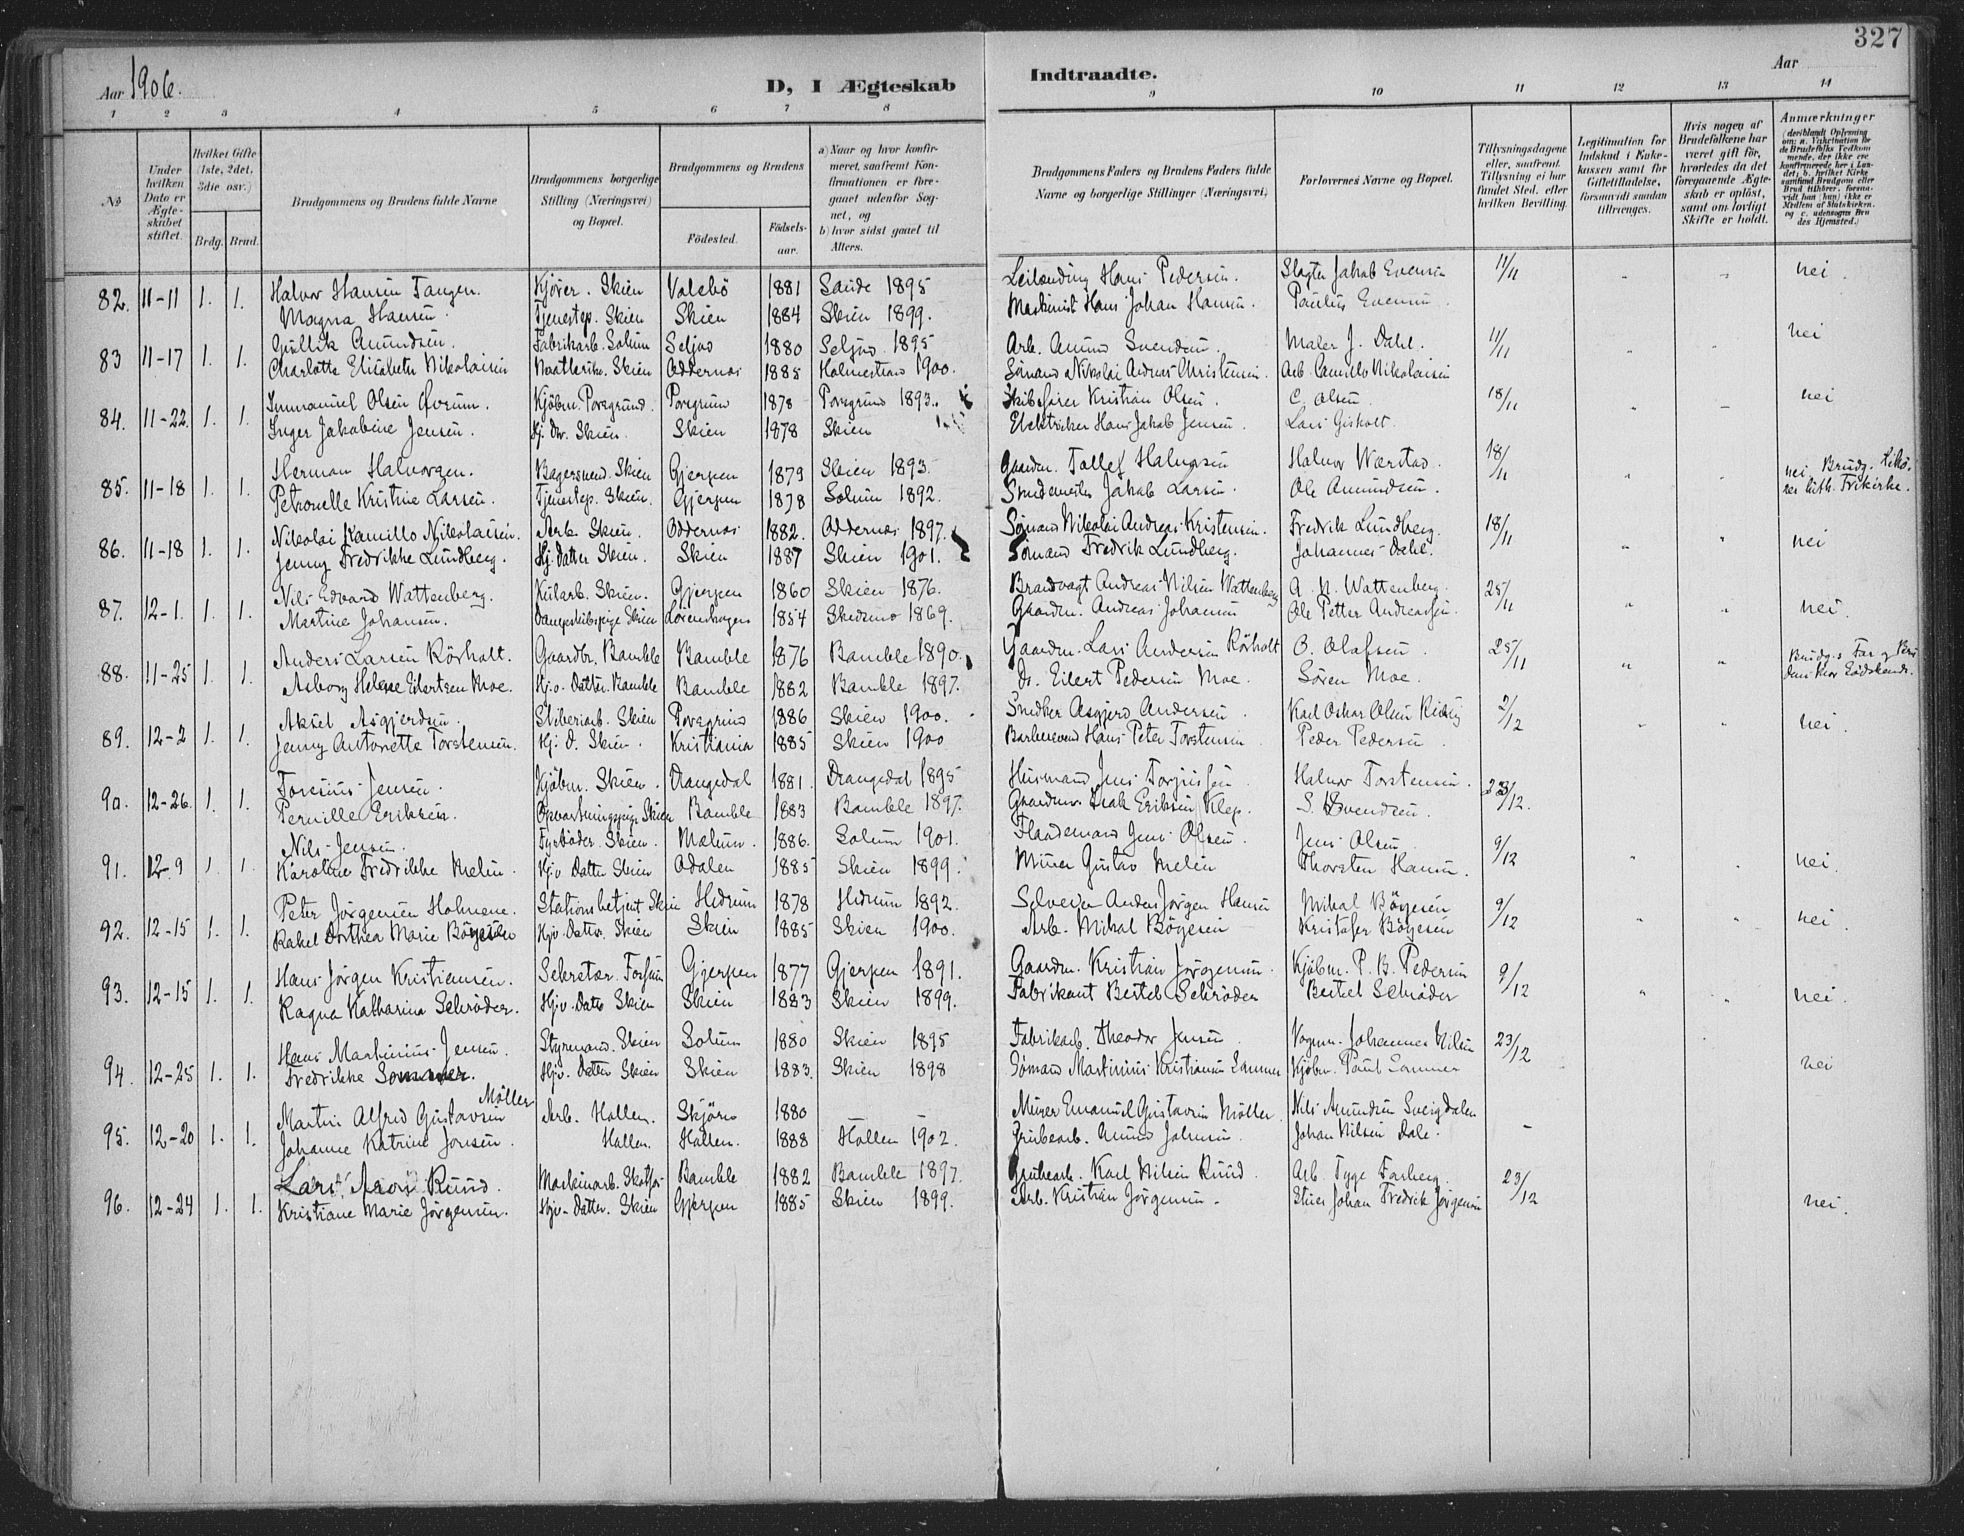 327
Aar 1906.
D, I Ægteskab
Indtraadte.
Aar
1 2 3 4 5 6 7 8 9 10 11 12 13 14
№
Under hvilken Dato er Ægteskabet stiftet.
Hvilket Gifte (1ste, 2det, 3die osv.)
Brdg. Brud.
Brudgommens og Brudens fulde Navne
Brudgommens borgerlige Stilling (Næringsvei) og Bopæl.
Brudgommens og Brudens
Födested.
Födselsaar.
a) Naar og hvor konfirmeret, saafremt Konfirmationen er foregaaet udenfor Sognet, og
b) hvor sidst gaaet til Alters.
Brudgommens Faders og Brudens Faders fulde Navne og borgerlige Stillinger (Næringsvei)
Forlovernes Navne og Bopæl.
Tillysningsdagene eller, saafremt Tillysning ei har fundet Sted, efter hvilken Bevilling.
Legitimation for Indskud i Enkekassen samt for Giftetilladelse, forsaavidt saadan tiltrænges.
Hvis nogen af Brudefolkene har været gift før, hvorledes da det foregaaende Ægteskab er opløst, samt om lovligt Skifte er holdt.
Anmærkninger
82. 11-11 1. 1. Halvor Hansen Tangen. Kjører. Skien Valebö 1881 Saude 1895 Leilending Hans Pedersen. Slagter Jakob Evensen 11/11 " " nei.
Magna Hansen. Tjenestep. Skien Skien 1884 Skien 1899. Maskinist Hans Johan Hansen. Paulus Evensen.
83 11-17 1. 1. Gullik Amundsen. Fabrikarb. Solum Seljord 1880 Seljord 1895 Arb. Amund Svendsen. Maler J. Dahl. 11/11 " " nei
Charlotte Elisabeth Nikolaisen Skien Oddernes 1885 Holmestrand 1900. Sømand Nikolai Andreas Christensen. Arb. Camillo Nikolaisen
84. 11-22. 1. 1. Immanuel Olsen Øverum. Kjöbm. Porsgrund. Porsgrund 1878 Porsgrund 1893. Skibsfører Kristian Olsen. C. Olsen. 18/11 " nei
Inger Jakobine Jensen. Skien. Skien 1878 Skien Elektriker Hans Jakob Jensen. Lars Gisholt.
85. 11-18 1. 1. Herman Halvorsen. Bagersvend. Skien Gjerpen 1879 Skien 1893. Gaardm. Tollef Halvorsen Halvor Værstad. 18/11 " " nei. Brudg.
Petronelle Kristine Larsen. Tjenestep. Skien. Gjerpen 1878 Solum 1892. Smedemester Jakob Larsen. Ole Amundsen. nei luth. Frikirke.
86. 11-18 1. 1. Nikolai Kamillo Nikolaisen. Arb. Skien. Oddernes 1882. Oddernes 1897. Sømand Nikolai Andreas Kristensen. Fredrik Lundberg. 18/11 " " nei
Jenny Fredrikke Lundberg. Hj. datter Skien. Skien 1887 Skien 1901. Sømand Fredrik Lundberg. Johannes Dahl.
87. 12-1. 1. 1. Nils Edvard Wattenberg. Kularb. Skien. Gjerpen 1860 Skien 1876. Brandvagt Andreas Nilsen Wattenberg A. N. Wattenberg. 25/11 " " nei.
Martine Johansen. Dampskibspige Skien Lörenskogen 1854 Skedsmo 1869. Gaardm. Andreas Johansen Ole Petter Andreassen.
88. 11-25 1. 1. Anders Larsen Rörholt. Gaardbr. Bamble Bamble 1876 Bamble 1890. Gaardm. Lars Andersen Rörholt O. Olafsen. 25/11 " " Brudg.s Far og Brudens Mor Södskende.
Asborg Helene Eilertsen Moe. Hj.v. Datter. Bamble Bamble 1882 Bamble 1897. do. Eilert Pedersen Moe. Sören Moe.
89. 12-2 1. 1. Aksel Asgjerdsen. Sliberiarb. Skien Porsgrund 1886 Skien 1900. Snedker Asgjerd Andersen. Karl Oskar Olsen 2/12 " " nei
Jenny Antonette Torstensen. Hj. D. Skien. Kristiania 1885 Skien 1900 Barbersvend Hans Peter Torstensen Peder Pedersen
90. 12-26. 1. 1. Toresius Jensen. Kjöbm. Skien. Drangedal 1881. Drangedal 1895 Husmand Jens Halvor Torstensen. 23/12.
Pernille Eriksen. Opvartningspige Skien Bamble 1883 Bamble 1897. Gaardm. Isak Eriksen Klep. S. Svendsen.
91. 12-9 1. 1. Nils Jensen. Fyrböder. Skien. Melum. 1886. Solum 1901. Flaademand Jens Olsen. Jens Olsen. 9/12 " " nei.
Karoline Fredrikke Melin. Hjv Datter Skien Ådalen 1885 Skien 1899. Murer Gustav Melin Thorsten Hansen.
92. 12-15 1. 1. Peter Jörgensen Holmene. Stationsbetjent Skien Hedrum 1878 Hedrum 1892. Selveier Anders Jörgen Hansen Mikal Böyesen 9/12 " " nei.
Rakel Dorthea Marie Böyesen Hjv. Datter. Skien Skien 1885 Skien 1900. Arb. Mikal Böyesen Kristofer Böyesen
93. 12-15 1. 1. Hans Jörgen Kristiansen. Sekretær. Gjerpen 1877 Gjerpen 1891. Gaardm. Kristian Jörgensen. Kjöbm. P. B. Pedersen 9/12 " " nei.
Ragna Katharina Schröder. Hjv. Datter Skien Skien 1883 Skien 1899. Fabrikant Bertel Schröder Bertel Schröder
94. 12-25 1. 1. Hans Martinius Jensen. Styrmand. Skien Solum 1880 Skien 1895 Fabrikarb. Theodor Jensen Vognm. Johannes Nilsen 23/12 nei
Fredrikke Sommer. Hjv. Datter Skien Skien 1883. Skien 1898 Sömand Martinius Kristiansen Sommer Kjöbm. Paul Sommer
95. 12-20 1. 1. Martin Alfred Gustavsen Möller Arb. Hollen. Skjörn 1880 Murer Emanuel Gustavsen Möller. Nils Amundsen Sveigdalen -
Johanne Katrine Jonsen. Hollen. Hollen. 1888 Hollen 1902. Grubearb. Amund Johnsen. Johan Nilsen Dale.
96. 12-24 1. 1. Lars Aron Ruud. Maskinarb. Skotfos Bamble 1882 Bamble 1897. Grubearb. Karl Nilsen Ruud. Arb. Tyge Farberg. 23/12 nei.
Kristiane Marie Jörgensen. Hjv. Datter. Skien Gjerpen 1885 Skien 1899. Arb. Kristian Jörgensen. Johan Fredrik Jörgensen